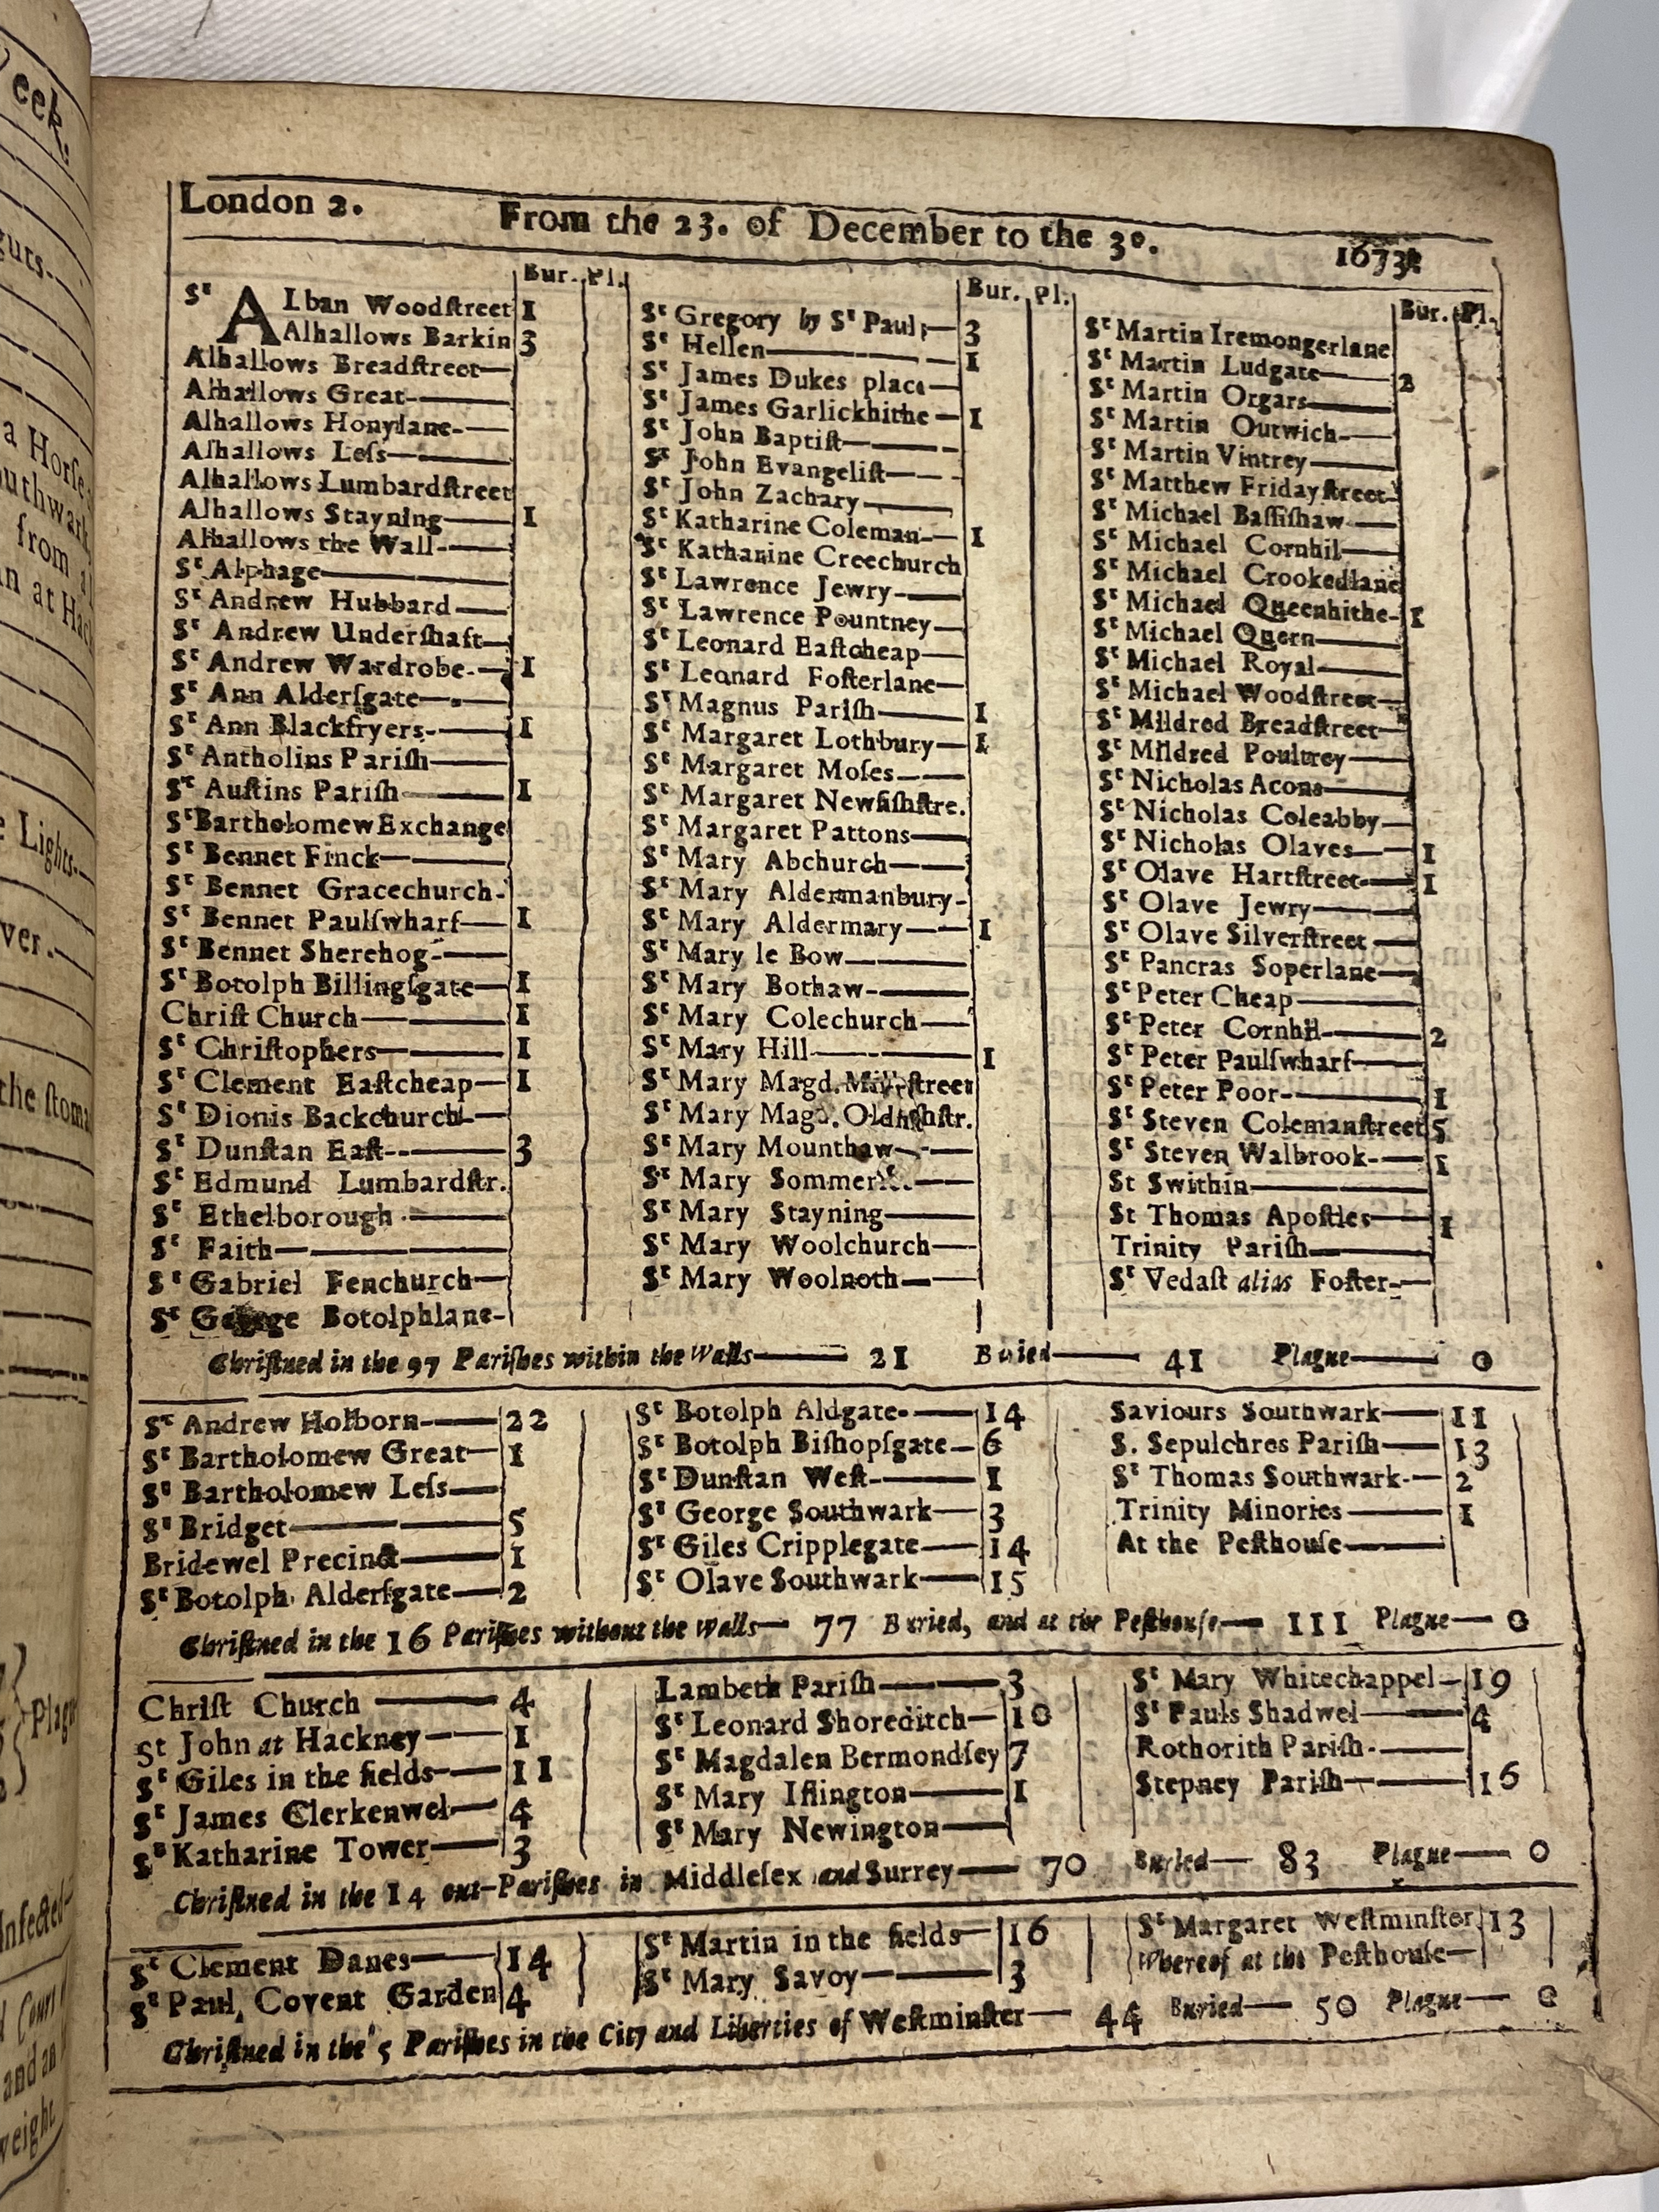 London 2. From the 23. of December to the 30. 1673
Bur. Pl.
St ALban Woodstreet 1
Alhallows Barkin 3
Alhallows Breadstreet—
Alhallows Great—
Alhallows Honylane—
Alhallows Leſs—
Alhallows Lumbardſtreet
Alhallows Stayning— 1
Alhallows the Wall—
St Alphage—
St Andrew Hubbard—
St Andrew Underſhaft—
St Andrew Wardrobe— 1
St Ann Alderſgate—
St Ann Blackfryers— 1
St Antholins Pariſh—
St Auſtins Pariſh— 1
St Bartholomew Exchange
St Bennet Finck—
St Bennet Gracechurch-
St Bennet Paulſwharf— 1
St Bennet Sherehog—
St Botolph Billingſgate— 1
Chriſt Church— 1
St Chriſtophers— 1
St Clement Eaſtcheap— 1
St Dionis Backchurch—
St Dunſtan Eaſt— 3
St Edmund Lumbardſtr.
St Ethelborough—
St Faith—
St Gabriel Fenchurch—
St George Botolphlane-
Bur. Pl.
St Gregory by St Pauls— 3
St Hellen— 1
St James Dukes place—
St James Garlickhithe— 1
St John Baptiſt—
St John Evangeliſt—
St John Zachary—
St Katharine Coleman— 1
St Katharine Creechurch
St Lawrence Jewry—
St Lawrence Pountney—
St Leonard Eaſtcheap—
St Leonard Foſterlane—
St Magnus Pariſh— 1
St Margaret Lothbury— 1
St Margaret Moſes—
St Margaret Newfiſhſtre.
St Margaret Pattons—
St Mary Abchurch—
St Mary Aldermanbury-
St Mary Aldermary— 1
St Mary le Bow—
St Mary Bothaw—
St Mary Colechurch—
St Mary Hill— 1
St Mary Magd. Milkſtreet
St Mary Magd. Oldfiſhſtr.
St Mary Mounthaw—
St Mary Sommerſet—
St Mary Stayning—
St Mary Woolchurch—
St Mary Woolnoth—
Bur. Pl.
St Martin Iremongerlane
St Martin Ludgate— 2
St Martin Orgars—
St Martin Outwich—
St Martin Vintrey—
St Matthew Fridayſtreet-
St Michael Baſſiſhaw—
St Michael Cornhil—
St Michael Crookedlane
St Michael Queenhithe- 1
St Michael Quern—
St Michael Royal—
St Michael Woodſtreet—
St Mildred Breadſtreet—
St Mildred Poultrey—
St Nicholas Acons—
St Nicholas Coleabby—
St Nicholas Olaves— 1
St Olave Hartſtreet— 1
St Olave Jewry—
St Olave Silverſtreet—
St Pancras Soperlane—
St Peter Cheap—
St Peter Cornhil— 2
St Peter Paulſwharf—
St Peter Poor— 1
St Steven Colemanſtreet 5
St Steven Walbrook— 1
St Swithin—
St Thomas Apoſtles— 1
Trinity Pariſh—
St Vedaſt alias Foſter—
Chriſtned in the 97 Pariſhes within the Walls— 21 Buried— 41 Plague— 0
St Andrew Holborn— 22
St Bartholomew Great— 1
St Bartholomew Leſs—
St Bridget— 5
Bridewel Precinct— 1
St Botolph Alderſgate— 2
St Botolph Aldgate— 14
St Botolph Biſhopſgate— 6
St Dunſtan Weſt— 1
St George Southwark— 3
St Giles Cripplegate— 14
St Olave Southwark— 15
Saviours Southwark— 11
S. Sepulchres Pariſh— 13
St Thomas Southwark— 2
Trinity Minories— 1
At the Peſthouſe—
Chriſtned in the 16 Pariſhes without the Walls— 77 Buried, and at the Peſthouſe— 111 Plague— 0
Chriſt Church— 4
St John at Hackney— 1
St Giles in the fields— 11
St James Clerkenwel— 4
St Katharine Tower— 3
Lambeth Pariſh— 3
St Leonard Shoreditch— 10
St Magdalen Bermondſey 7
St Mary Iſlington— 1
St Mary Newington—
St Mary Whitechappel— 19
St Pauls Shadwel— 4
Rothorith Pariſh—
Stepney Pariſh— 16
Chriſtned in the 14 out-Pariſhes in Middleſex and Surrey— 70 Buried— 83 Plague— 0
St Clement Danes— 14
St Paul Covent Garden 4
St Martin in the fields— 16
St Mary Savoy— 3
St Margaret Weſtminſter 13
Whereof at the Peſthouſe—
Chriſtned in the 5 Pariſhes in the City and Liberties of Weſtminſter— 44 Buried— 50 Plague— 0
eek.
guts-
a Horſe
from
Lights-
ver.—
the ſtoma
Plague
Infected
and an
weight